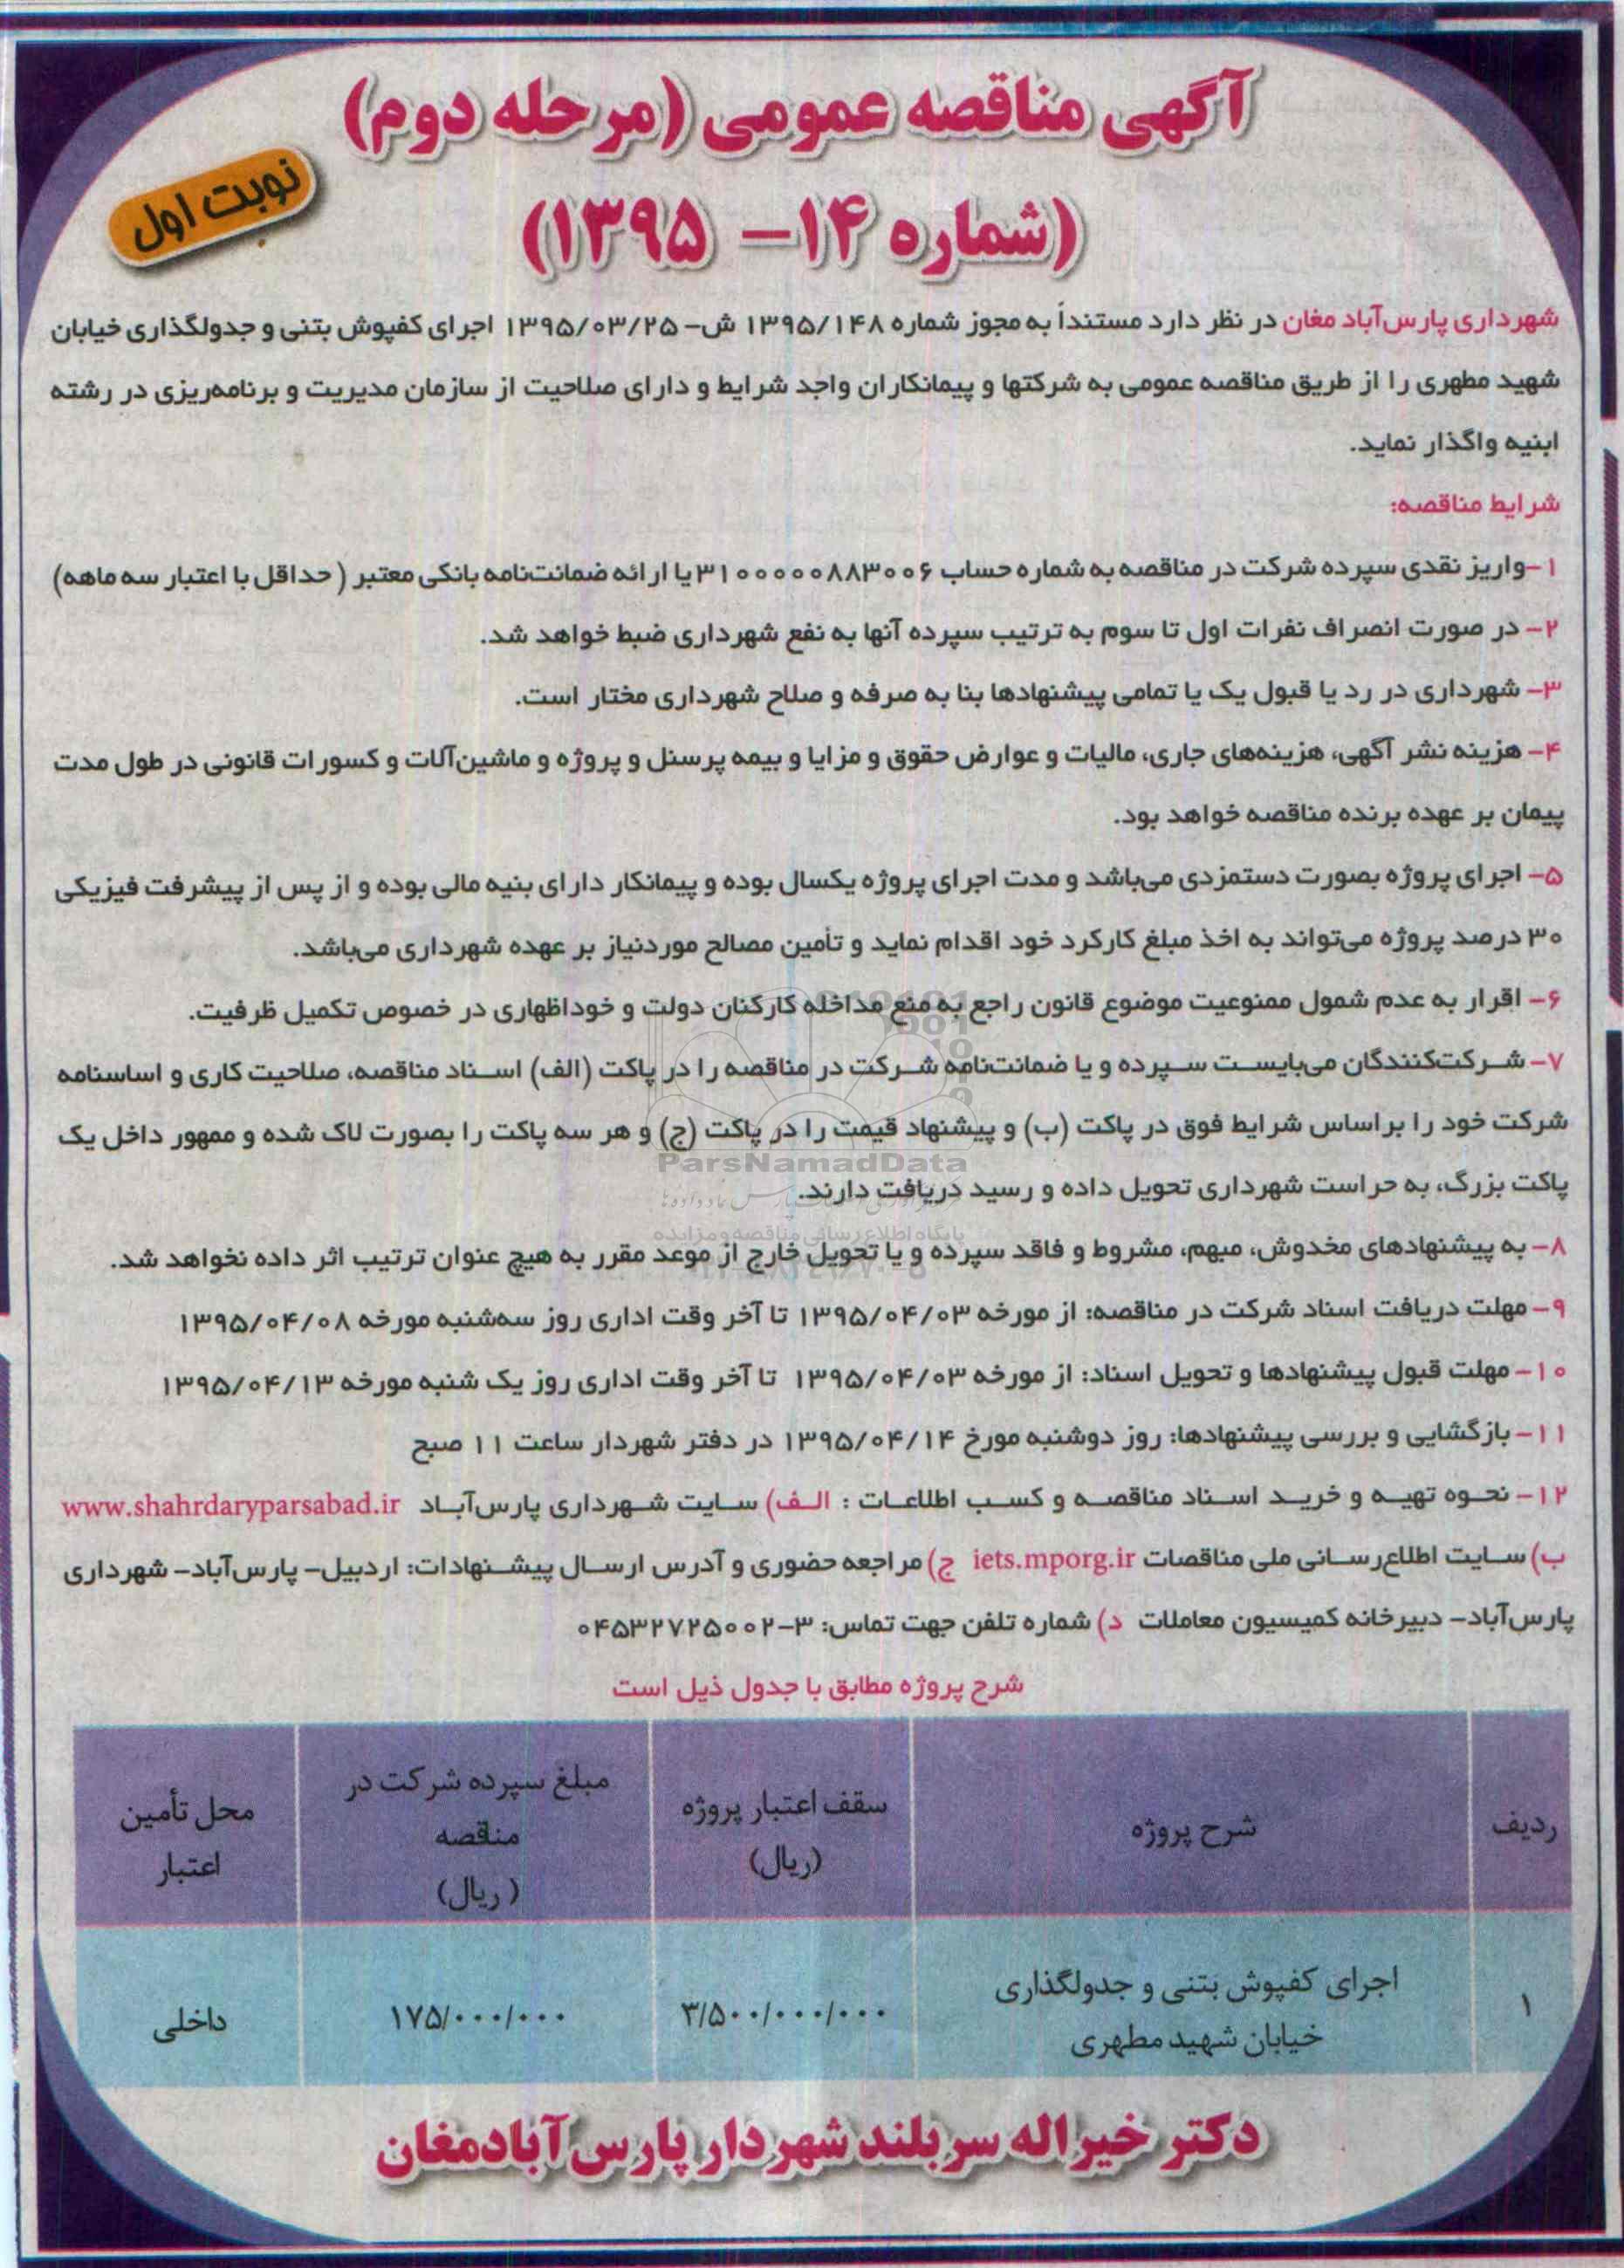 آگهی مناقصه عمومی (مرحله دوم)
(شماره ۱۴- ۱۳۹۵)
نوبت اول
شهرداری پارس‌آباد مغان در نظر دارد مستنداً به مجوز شماره ۱۳۹۵/۱۴۸ ش- ۱۳۹۵/۰۳/۲۵ اجرای کفپوش بتنی و جدولگذاری خیابان
شهید مطهری را از طریق مناقصه عمومی به شرکتها و پیمانکاران واجد شرایط و دارای صلاحیت از سازمان مدیریت و برنامه‌ریزی در رشته
ابنیه واگذار نماید.
شرایط مناقصه:
۱-واریز نقدی سپرده شرکت در مناقصه به شماره حساب ۳۱۰۰۰۰۰۸۸۳۰۰۶ یا ارائه ضمانت‌نامه بانکی معتبر ( حداقل با اعتبار سه ماهه)
۲- در صورت انصراف نفرات اول تا سوم به ترتیب سپرده آنها به نفع شهرداری ضبط خواهد شد.
۳- شهرداری در رد یا قبول یک یا تمامی پیشنهادها بنا به صرفه و صلاح شهرداری مختار است.
۴- هزینه نشر آگهی، هزینه‌های جاری، مالیات و عوارض حقوق و مزایا و بیمه پرسنل و پروژه و ماشین‌آلات و کسورات قانونی در طول مدت
پیمان بر عهده برنده مناقصه خواهد بود.
۵- اجرای پروژه بصورت دستمزدی می‌باشد و مدت اجرای پروژه یکسال بوده و پیمانکار دارای بنیه مالی بوده و از پس از پیشرفت فیزیکی
۳۰ درصد پروژه می‌تواند به اخذ مبلغ کارکرد خود اقدام نماید و تأمین مصالح موردنیاز بر عهده شهرداری می‌باشد.
۶- اقرار به عدم شمول ممنوعیت موضوع قانون راجع به منع مداخله کارکنان دولت و خوداظهاری در خصوص تکمیل ظرفیت.
۷- شرکت‌کنندگان می‌بایست سپرده و یا ضمانت‌نامه شرکت در مناقصه را در پاکت (الف) اسناد مناقصه، صلاحیت کاری و اساسنامه
شرکت خود را براساس شرایط فوق در پاکت (ب) و پیشنهاد قیمت را در پاکت (ج) و هر سه پاکت را بصورت لاک شده و ممهور داخل یک
ParsNamadData
پاکت بزرگ، به حراست شهرداری تحویل داده و رسید دریافت دارند.
پایگاه اطلاع رسانی مناقصه و مزایده
۸- به پیشنهادهای مخدوش، مبهم، مشروط و فاقد سپرده و یا تحویل خارج از موعد مقرر به هیچ عنوان ترتیب اثر داده نخواهد شد.
۹- مهلت دریافت اسناد شرکت در مناقصه: از مورخه ۱۳۹۵/۰۴/۰۳ تا آخر وقت اداری روز سه‌شنبه مورخه ۱۳۹۵/۰۴/۰۸
۱۰- مهلت قبول پیشنهادها و تحویل اسناد: از مورخه ۱۳۹۵/۰۴/۰۳ تا آخر وقت اداری روز یک شنبه مورخه ۱۳۹۵/۰۴/۱۳
۱۱- بازگشایی و بررسی پیشنهادها: روز دوشنبه مورخ ۱۳۹۵/۰۴/۱۴ در دفتر شهردار ساعت ۱۱ صبح
۱۲- نحوه تهیه و خرید اسناد مناقصه و کسب اطلاعات : الف) سایت شهرداری پارس‌آباد www.shahrdaryparsabad.ir
ب) سایت اطلاع‌رسانی ملی مناقصات iets.mporg.ir ج) مراجعه حضوری و آدرس ارسال پیشنهادات: اردبیل- پارس‌آباد- شهرداری
پارس‌آباد- دبیرخانه کمیسیون معاملات د) شماره تلفن جهت تماس: ۳-۰۴۵۳۲۷۲۵۰۰۲
شرح پروژه مطابق با جدول ذیل است
ردیف شرح پروژه سقف اعتبار پروژه (ریال) مبلغ سپرده شرکت در مناقصه ( ریال) محل تأمین اعتبار
۱ اجرای کفپوش بتنی و جدولگذاری خیابان شهید مطهری ۳/۵۰۰/۰۰۰/۰۰۰ ۱۷۵/۰۰۰/۰۰۰ داخلی
دکتر خیراله سربلند شهردار پارس‌آبادمغان